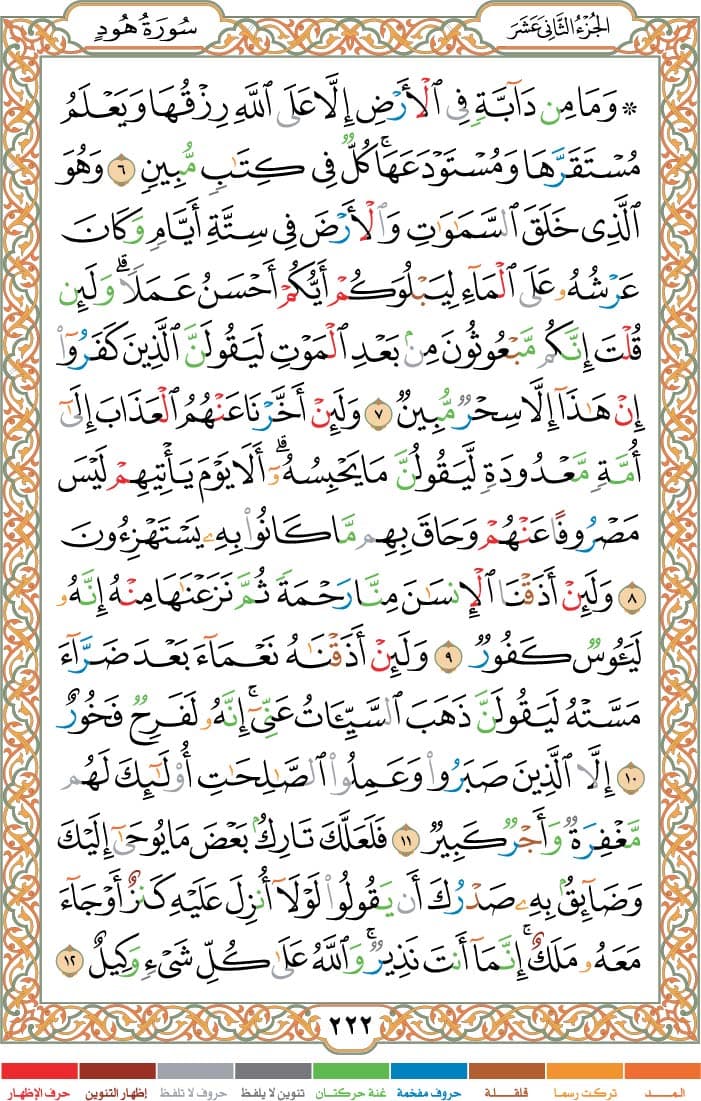 سُورَةُ هُودٍ
الجُزْءُ الثَّانِي عَشَرَ
۞ وَمَا مِن دَآبَّةٍ فِي ٱلْأَرْضِ إِلَّا عَلَى ٱللَّهِ رِزْقُهَا وَيَعْلَمُ
مُسْتَقَرَّهَا وَمُسْتَوْدَعَهَا ۚ كُلٌّ فِي كِتَٰبٍ مُّبِينٍ ٦ وَهُوَ
ٱلَّذِي خَلَقَ ٱلسَّمَٰوَٰتِ وَٱلْأَرْضَ فِي سِتَّةِ أَيَّامٍ وَكَانَ
عَرْشُهُۥ عَلَى ٱلْمَآءِ لِيَبْلُوَكُمْ أَيُّكُمْ أَحْسَنُ عَمَلًا ۗ وَلَئِن
قُلْتَ إِنَّكُم مَّبْعُوثُونَ مِنۢ بَعْدِ ٱلْمَوْتِ لَيَقُولَنَّ ٱلَّذِينَ كَفَرُوٓا۟
إِنْ هَٰذَآ إِلَّا سِحْرٌ مُّبِينٌ ٧ وَلَئِنْ أَخَّرْنَا عَنْهُمُ ٱلْعَذَابَ إِلَىٰٓ
أُمَّةٍ مَّعْدُودَةٍ لَّيَقُولُنَّ مَا يَحْبِسُهُۥٓ ۗ أَلَا يَوْمَ يَأْتِيهِمْ لَيْسَ
مَصْرُوفًا عَنْهُمْ وَحَاقَ بِهِم مَّا كَانُوا۟ بِهِۦ يَسْتَهْزِءُونَ
٨ وَلَئِنْ أَذَقْنَا ٱلْإِنسَٰنَ مِنَّا رَحْمَةً ثُمَّ نَزَعْنَٰهَا مِنْهُ إِنَّهُۥ
لَيَـُٔوسٌ كَفُورٌ ٩ وَلَئِنْ أَذَقْنَٰهُ نَعْمَآءَ بَعْدَ ضَرَّآءَ
مَسَّتْهُ لَيَقُولَنَّ ذَهَبَ ٱلسَّيِّـَٔاتُ عَنِّيٓ ۚ إِنَّهُۥ لَفَرِحٌ فَخُورٌ
١٠ إِلَّا ٱلَّذِينَ صَبَرُوا۟ وَعَمِلُوا۟ ٱلصَّٰلِحَٰتِ أُو۟لَٰٓئِكَ لَهُم
مَّغْفِرَةٌ وَأَجْرٌ كَبِيرٌ ١١ فَلَعَلَّكَ تَارِكٌۢ بَعْضَ مَا يُوحَىٰٓ إِلَيْكَ
وَضَآئِقٌۢ بِهِۦ صَدْرُكَ أَن يَقُولُوا۟ لَوْلَآ أُنزِلَ عَلَيْهِ كَنزٌ أَوْ جَآءَ
مَعَهُۥ مَلَكٌ ۚ إِنَّمَآ أَنتَ نَذِيرٌ ۚ وَٱللَّهُ عَلَىٰ كُلِّ شَيْءٍ وَكِيلٌ ١٢
٢٢٢
المــد تركت رسما قلقلة حروف مفخمة غنة حركتان تنوين لا يلفظ حروف لا تلفظ إظهار التنوين حرف الإظهار